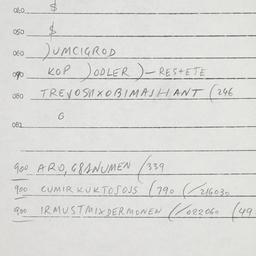 060 $
050 $
060 )UMCIGROD
090 KOP )ODLER )—RESTETE
080 TREVOSNXOBIMAJHANT (246
G
082
900 ARO, G8ANUMEN /339
900 CUMIRKUKTOJOJS (790 (/216030
900 IRMUSTMIXDERMONEN (/022060 (49